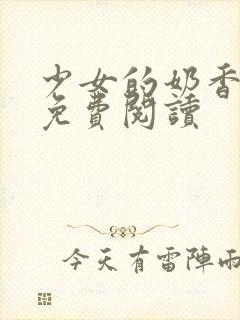 少女的奶香
免費閱讀
今天有雷陣雨